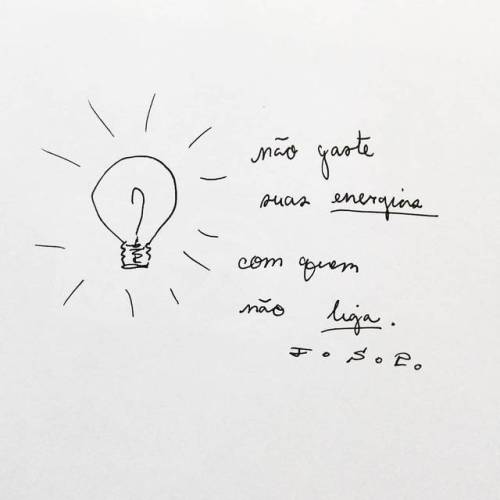 não gaste
suas energias
com quem
não liga.
J. S. P.